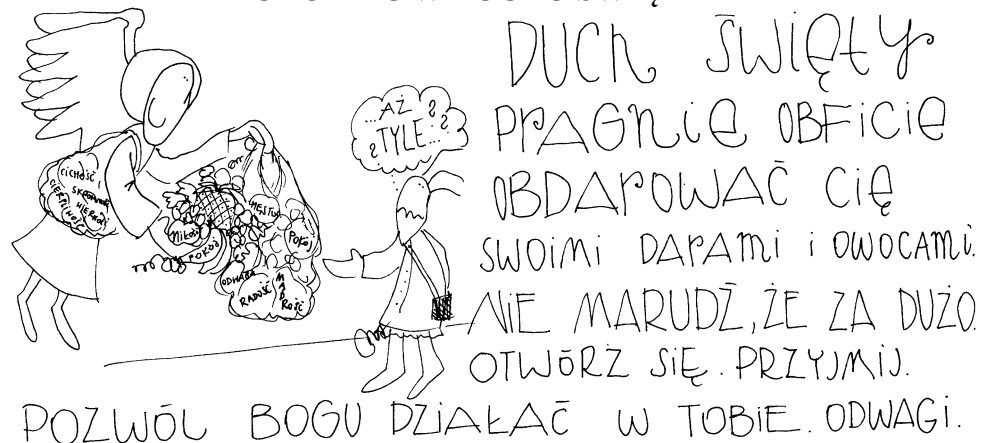 DUCh ŚWIĘTY
PrAGnie OBFicie
OBDArOWAĆ CIĘ
SWOiMi DArAmi i OWOCAMi.
NIE MARUDŹ, ŻE ZA DUŻO.
OTWÓRZ SIĘ. PRZYJMIJ.
POZWÓL BOGU DZIAŁAĆ W TOBIE. ODWAGI.
...AŻ
TYLE...??
CICHOŚĆ
CIERPLIWOŚĆ
MĘSTWO
Miłość
POKÓJ
POKÓJ
ODWAGA
RADOŚĆ
MĄDROŚĆ